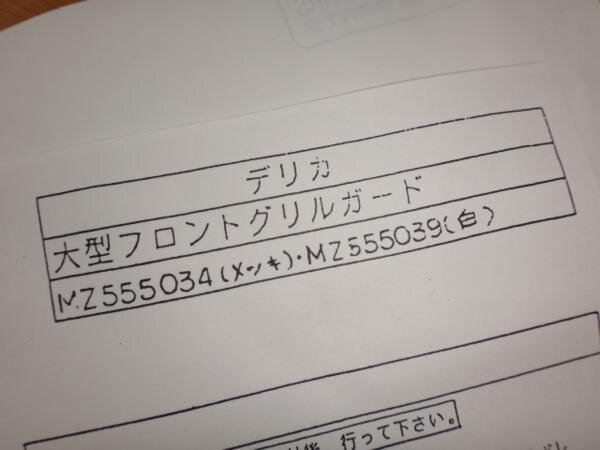 デリカ
大型フロントグリルガード
MZ555034(メッキ)・MZ555039(白)
行って下さい。